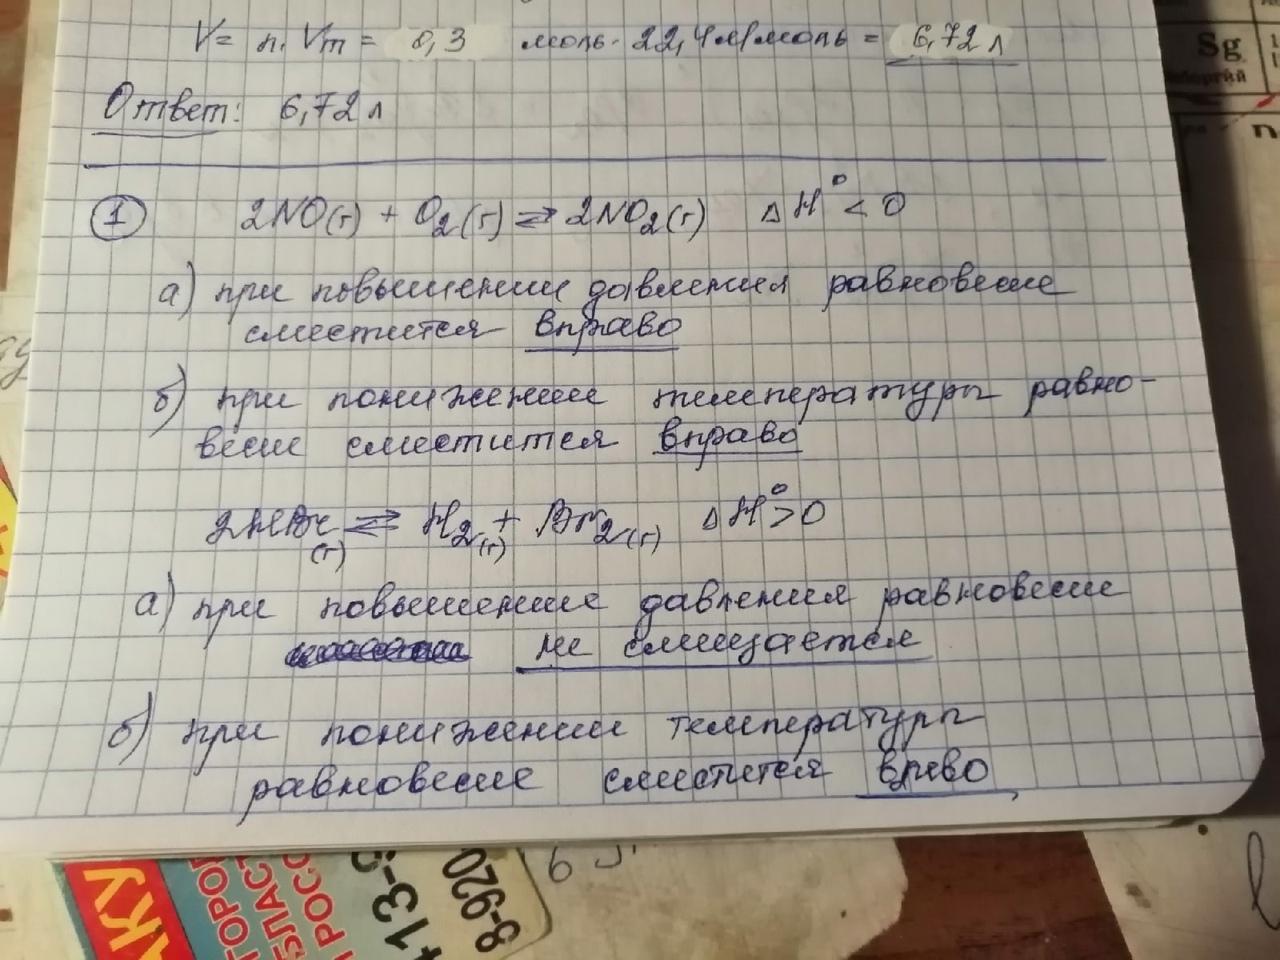 V = n. Vm = 0,3 моль. 22,4 л/моль = 6,72 л
Ответ: 6,72 л
1 2NO(г) + O2(г) ⇄ 2NO2(г) ΔH° < 0
а) при повышении давления равновесие
сместится вправо
б) при понижении температуры равно-
весие сместится вправо
2HBr(г) ⇄ H2(г) + Br2(г) ΔH° > 0
а) при повышении давления равновесие
не смещается
б) при понижении температуры
равновесие сместится влево
Sg
п
АКУ
ГОРО
БЛАС
РОСС
+13-
8-920
6